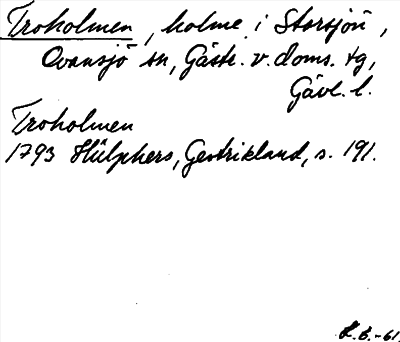 Troholmen, holme i Storsjön,
Ovansjö sn, Gästr. v. doms. tg,
Gävl. l.
Troholmen
1793 Hülphers, Gestrikland, s. 191.
K.B.-61.